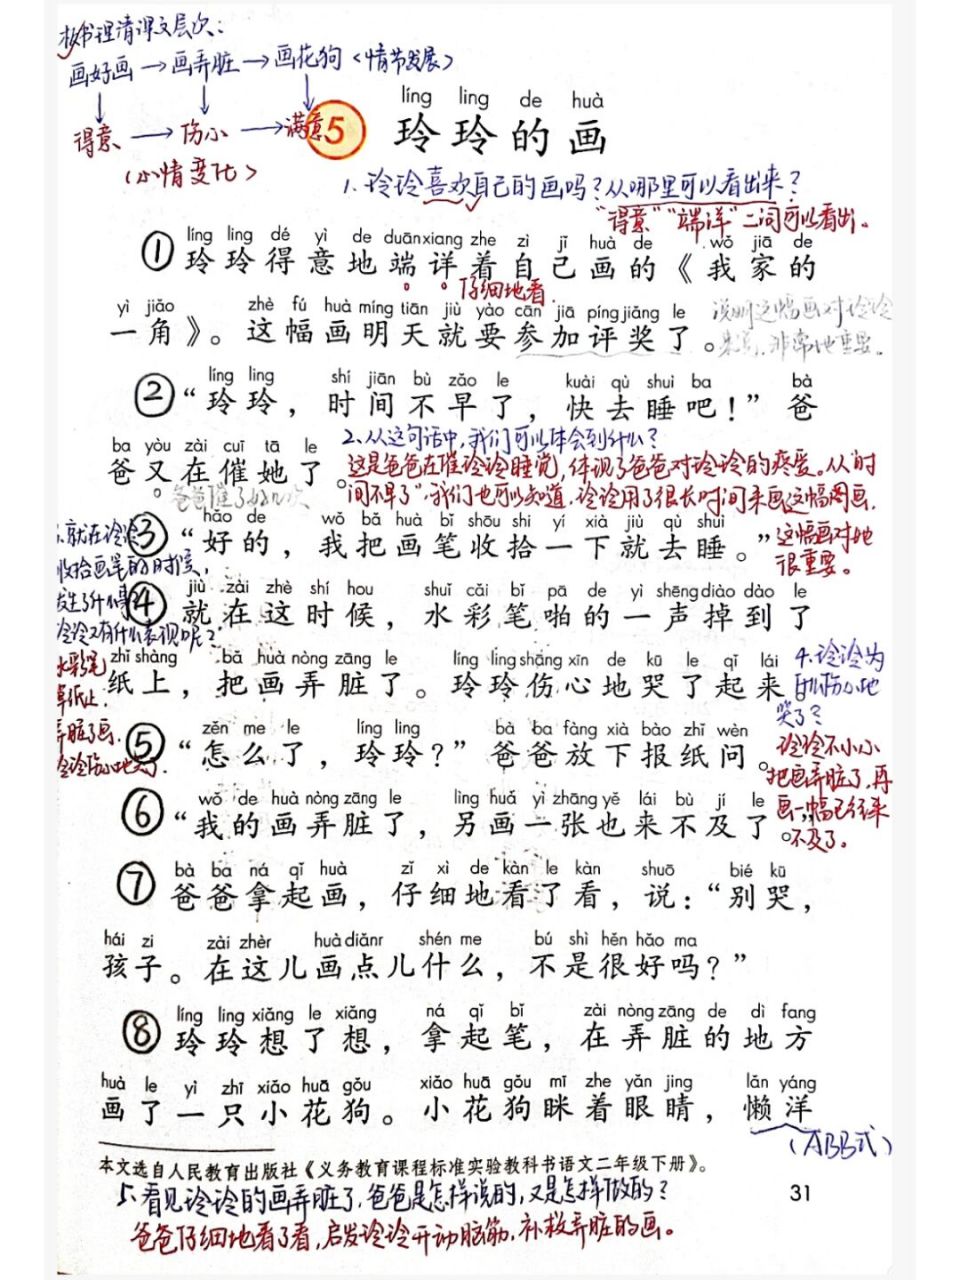 板书理清课文层次:
画好画→画弄脏→画花狗<情节发展>
得意→伤心→满意
(心情变化)
líng ling de huà
5 玲玲的画
1.玲玲喜欢自己的画吗?从哪里可以看出来?
"得意""端详"二词可以看出。
líng ling dé yì de duānxiang zhe zì jǐ huà de wǒ jiā de
①玲玲得意地端详着自己画的《我家的
仔细地看.
yì jiǎo zhè fú huà míng tiān jiù yào cān jiā píng jiǎng le
一角》。这幅画明天就要参加评奖了。
说明这幅画对玲玲
来说,非常地重要。
líng ling shí jiān bù zǎo le kuài qù shuì ba bà
②"玲玲,时间不早了,快去睡吧!"爸
ba yòu zài cuī tā le
爸又在催她了。
2.从这句话中,我们可以体会到什么?
这是爸爸在催玲玲睡觉,体现了爸爸对玲玲的疼爱。从"时
间不早了"我们也可以知道,玲玲用了很长时间来画这幅图画,
这幅画对她
很重要。
爸爸催了好几次
hǎo de wǒ bǎ huà bǐ shōu shi yí xià jiù qù shuì
③"好的,我把画笔收拾一下就去睡。"
3.就在玲玲
收拾画笔的时候,
发生了什么事?
玲玲又有什么表现呢?
水彩笔
掉纸上.
弄脏了画.
玲玲伤心地哭了.
jiù zài zhè shí hou shuǐ cǎi bǐ pā de yì shēng diào dào le
④就在这时候,水彩笔啪的一声掉到了
zhǐ shàng bǎ huà nòng zāng le líng ling shāng xīn de kū le qǐ lái
纸上,把画弄脏了。玲玲伤心地哭了起来
4.玲玲为
什么伤心地
哭了?
玲玲不小心
把画弄脏了,再
画一幅已经来
不及了。
zěn me le líng ling bà ba fàng xià bào zhǐ wèn
⑤"怎么了,玲玲?"爸爸放下报纸问。
wǒ de huà nòng zāng le lìng huà yì zhāng yě lái bù jí le
⑥"我的画弄脏了,另画一张也来不及了。"
bà ba ná qǐ huà zǐ xì de kàn le kàn shuō bié kū
⑦爸爸拿起画,仔细地看了看,说:"别哭,
hái zi zài zhèr huà diǎnr shén me bú shì hěn hǎo ma
孩子。在这儿画点儿什么,不是很好吗?"
líng ling xiǎng le xiǎng ná qǐ bǐ zài nòng zāng de dì fang
⑧玲玲想了想,拿起笔,在弄脏的地方
huà le yì zhī xiǎo huā gǒu xiǎo huā gǒu mī zhe yǎn jing lǎn yáng
画了一只小花狗。小花狗眯着眼睛,懒洋
(ABB式)
本文选自人民教育出版社《义务教育课程标准实验教科书语文二年级下册》。
31
5.看见玲玲的画弄脏了,爸爸是怎样说的,又是怎样做的?
爸爸仔细地看了看,启发玲玲开动脑筋,补救弄脏的画。